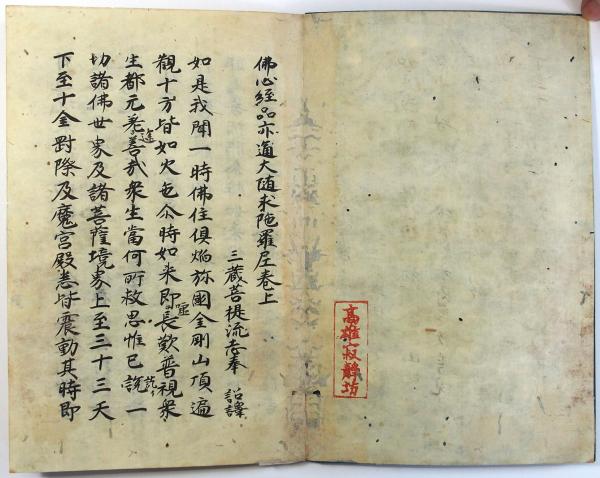 高雄寂靜坊
佛心経品亦通大随求陁羅尼卷上
三藏菩提流志奉 詔譯
如是我聞一時佛住俱焔弥國金剛山頂遍
觀十方皆如火色尒時如来即長歎普視衆
噓
生都元養善㢤衆生當何所救思惟已說一
途
切諸佛世界及諸菩薩境界上至三十三天
下至十金對際及魔宮殿悉皆震動其時即